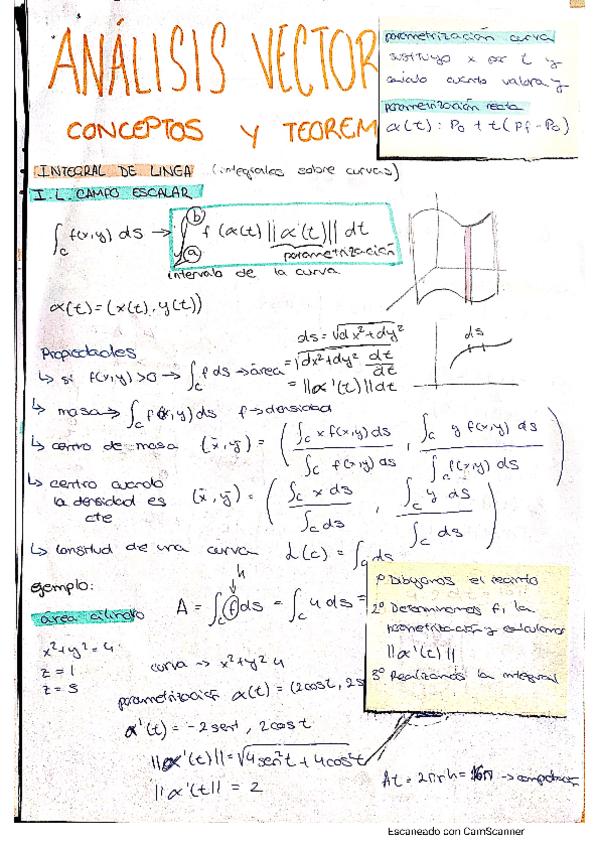 ANÁLISIS VECTOR
CONCEPTOS Y TEOREM
parametrización curva
sustituyo x por t y
calculo cuanto valora y
parametrización recta
α(t): P₀ + t(Pf - P₀)
INTEGRAL DE LINEA (integrales sobre curvas)
I.L. CAMPO ESCALAR
∫_C f(x,y) ds → ∫_a^b f(α(t)) ||α'(t)|| dt
parametrización
intervalo de la curva
α(t) = (x(t), y(t))
ds = √dx²+dy²
ds
Propiedades
↳ si f(x,y) > 0 → ∫_C f ds → área = √dx²+dy² dt/dt
= ||α'(t)|| dt
↳ masa → ∫_C f(x,y) ds f → densidad
↳ centro de masa (x̄, ȳ) = (∫_C x f(x,y) ds / ∫_C f(x,y) ds , ∫_C y f(x,y) ds / ∫_C f(x,y) ds)
↳ centro cuando
la densidad es
cte
(x̄, ȳ) = (∫_C x ds / ∫_C ds , ∫_C y ds / ∫_C ds)
↳ longitud de una curva L(c) = ∫_C ds
ejemplo:
h
área cilindro A = ∫_C f ds = ∫_C 4 ds =
1º Dibujamos el recinto
2º Determinamos f, la
parametrización y calculamos
||α'(t)||
3º Realizamos la integral
x²+y² = 4
z = 1
z = 5
curva → x²+y² 4
parametrización α(t) = (2cost, 2s
α'(t) = -2sent, 2cost
||α'(t)|| = √4sen²t + 4cos²t
||α'(t|| = 2
At = 2πrh = 16π → comprobación
Escaneado con CamScanner